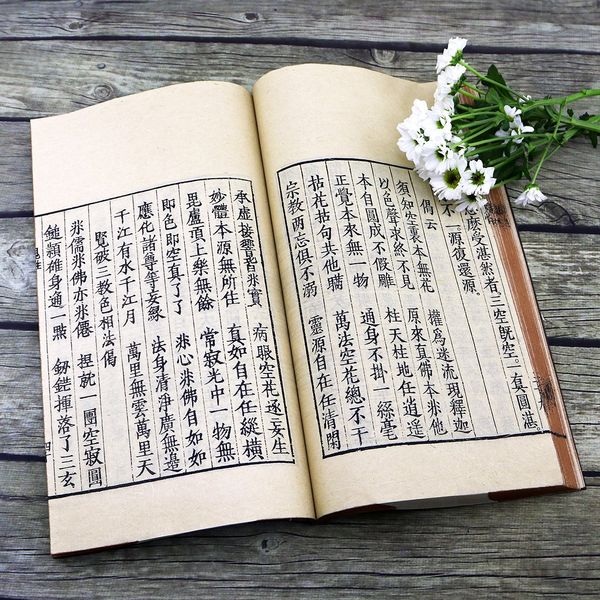 麼受湛然者。三空旣空。一眞圓湛。
不 一源復還源。
偈云
須知空裏本無花 權爲迷流現釋迦
以色聲求終不見 原來眞佛本非他
本自圓成不假雕 柱天柱地任逍遙
正覺本來無一物 通身不掛一絲毫
拈花拈句共他瞞 萬法空花總不干
宗教两忘俱不溺 靈源自在任清閑
承虛接響皆非實 病眼空花逐妄生
妙體本源無所住 眞如自在任縱橫
毘盧頂上樂無餘 常寂光中一物無
即色即空眞了了 非心非佛自如如
應化諸尊等妄緣 法身清淨廣無邊
千江有水千江月 萬里無雲萬里天
覽破三教色相法偈
非儒非佛亦非僊 捏就一團空寂圓
鎚顙碓身通一㸃 劒 揮落了三玄
四